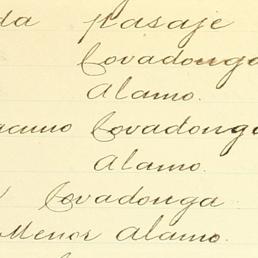 da pasaje
Covadonga
Alamo.
Covadonga
Alamo.
Covadonga
Menor Alamo.